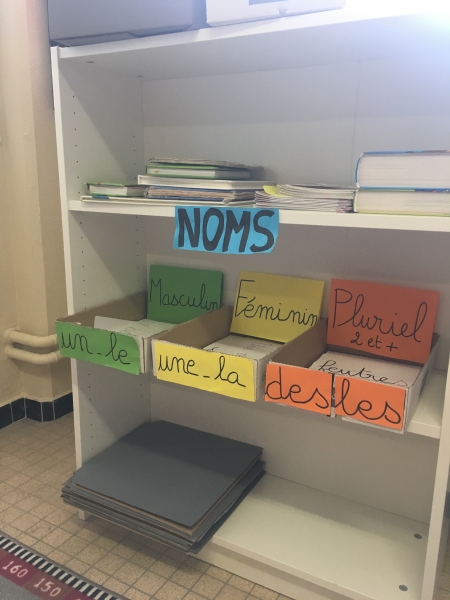 NOMS
Masculin
Féminin
Pluriel
2 et +
un_le
une_la
feutres
des les
160 150